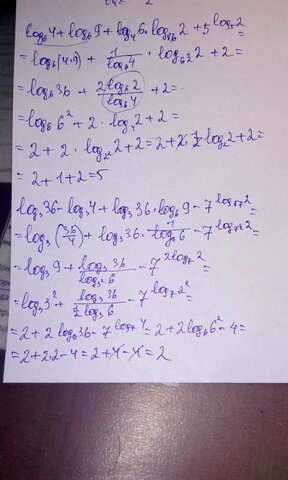 log₆4 + log₆9 + log₄6 · log√6 2 + 5^log₅2 =
= log₆(4·9) + 1/log₆4 · log₆½ 2 + 2 =
= log₆36 + 2log₆2/log₆4 + 2 =
= log₆6² + 2 · log₄2 + 2 =
= 2 + 2 · log₂²2 + 2 = 2 + 2 · ½log₂2 + 2 =
= 2 + 1 + 2 = 5
log₃36 - log₃4 + log₃36 · log₆9 - 7^log√7 2 =
= log₃(36/4) + log₃36 · 1/log₉6 - 7^log₇½ 2 =
= log₃9 + log₃36/log₃²6 - 7^2log₇2 =
= log₃3² + log₃36/½log₃6 - 7^log₇2² =
= 2 + 2log₆36 - 7^log₇4 = 2 + 2log₆6² - 4 =
= 2 + 2·2 - 4 = 2 + 4 - 4 = 2